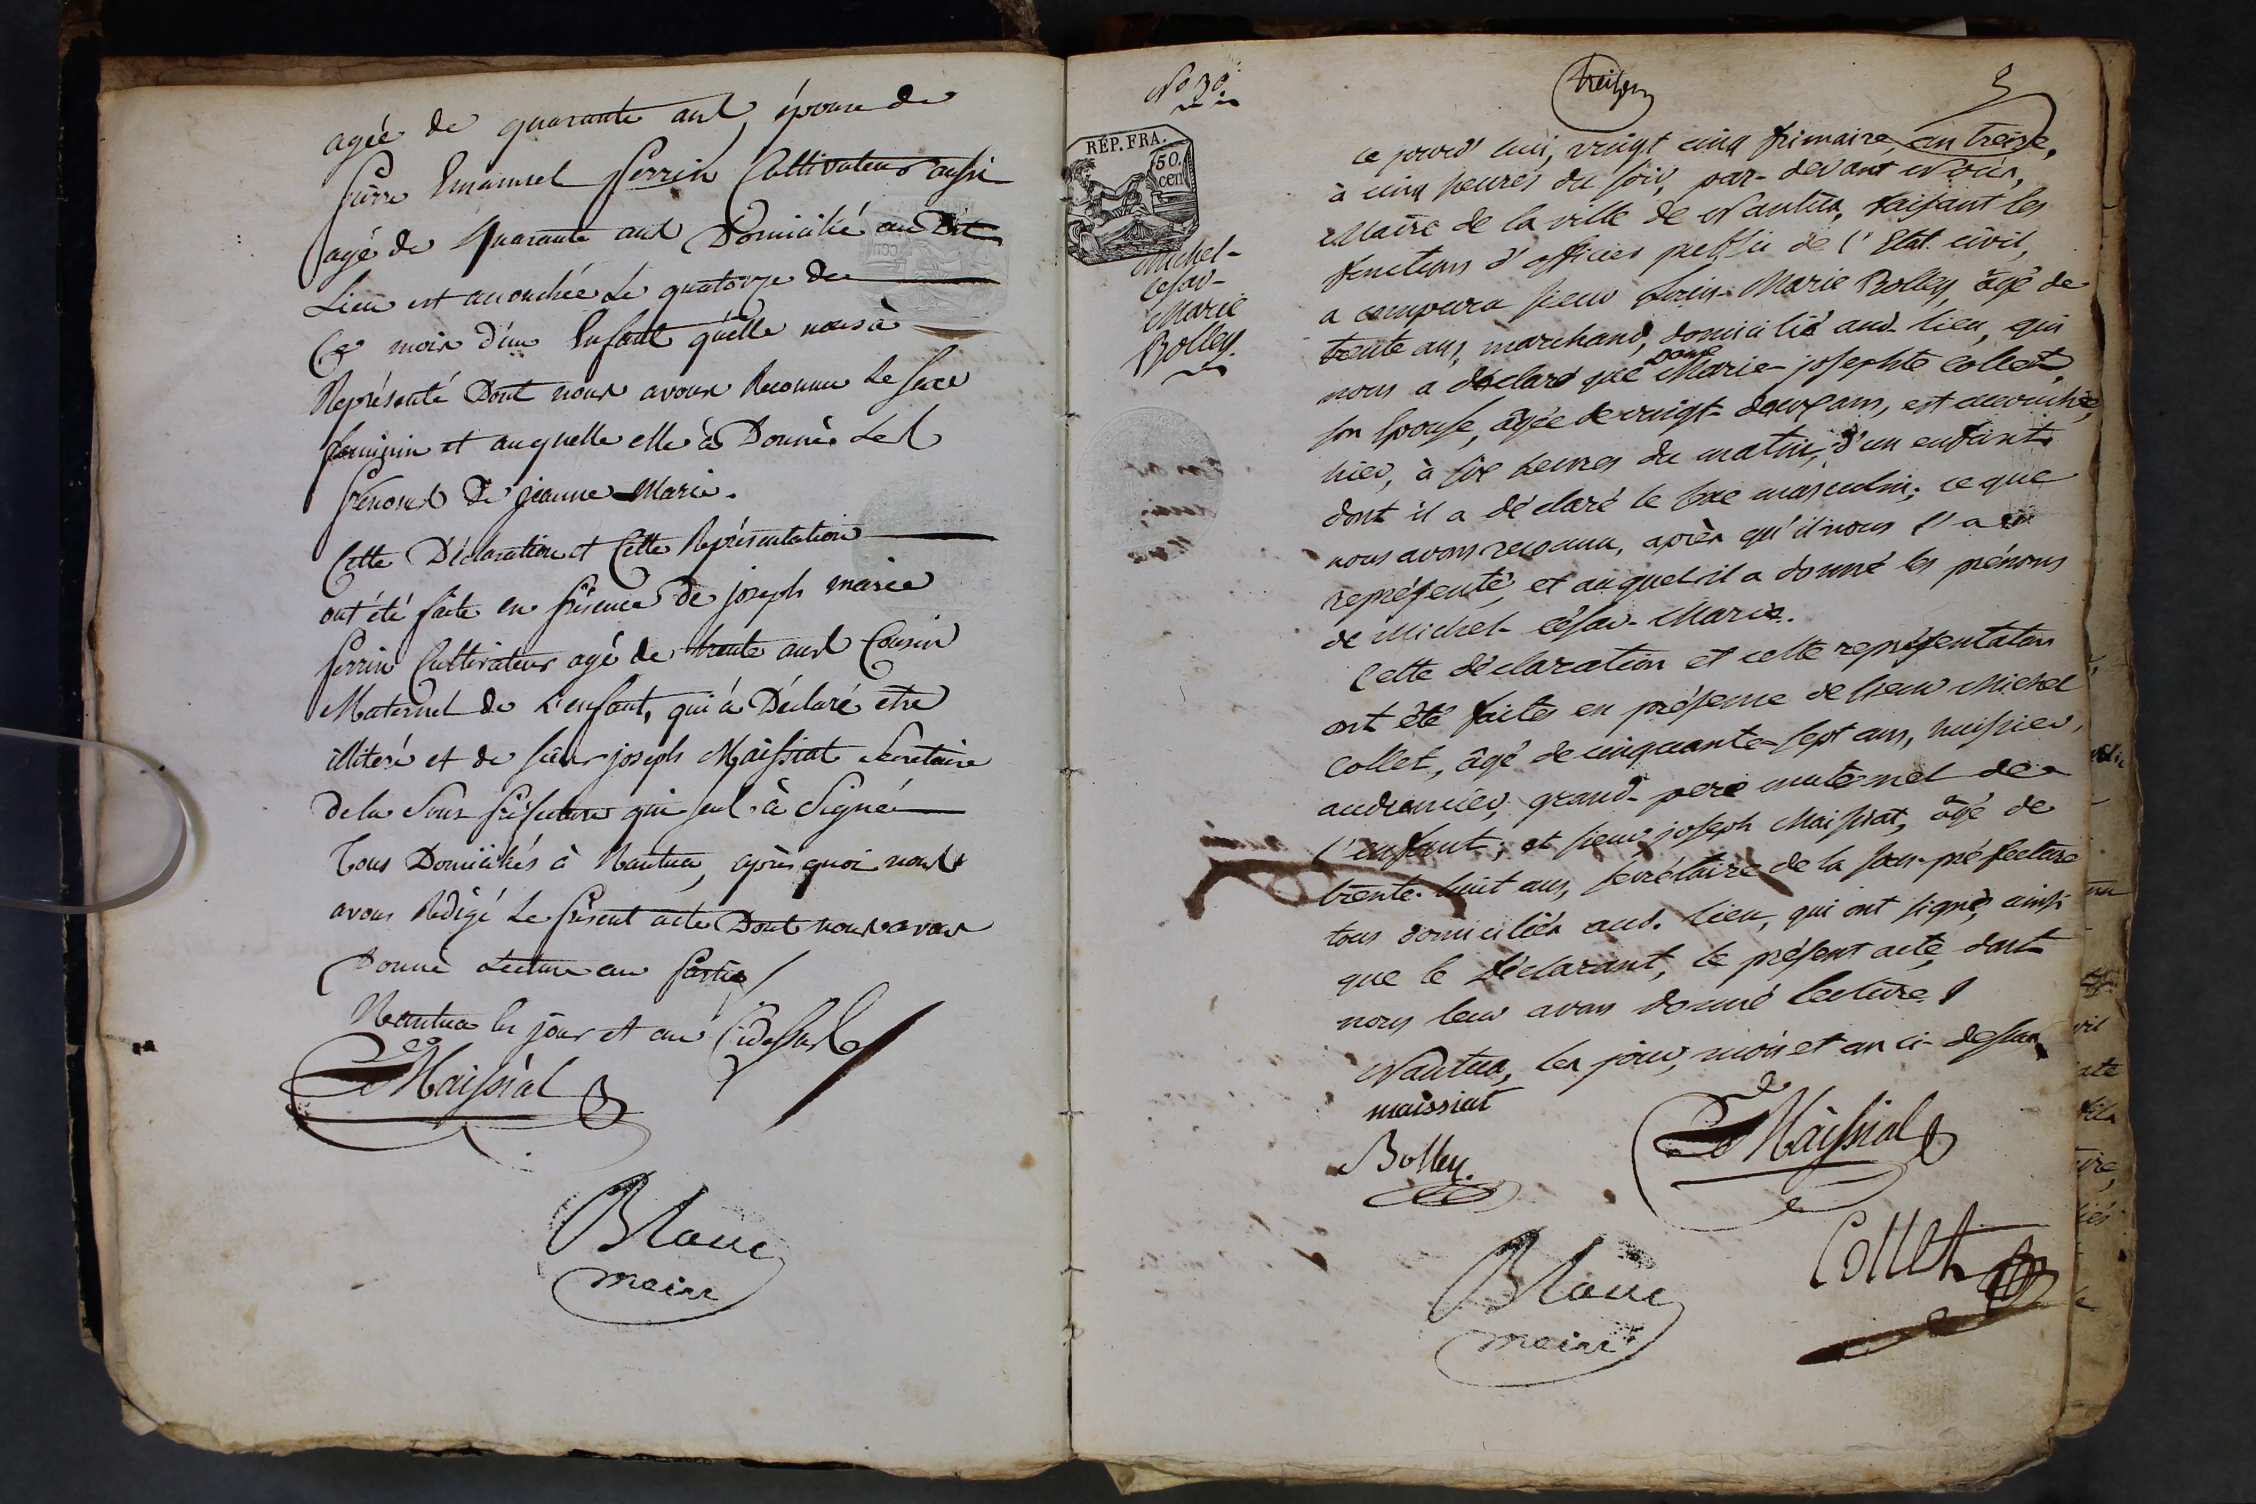 agée de quarante ans, épouse de
pierre Emanuel perrin Cultivateur aussi
agé de Quarante ans Domicilié au Dit
Lieu est accouchée Le quatorze de
Ce mois d'un Enfant qu'elle nous à
Représenté Dont nous avons Reconnu Le sexe
feminin et auquelle elle à Donné Les
prénoms De jeanne Marie.
Cette Déclaration et Cette Représentation
ont été faite en présence de joseph marie
perrin Cultivateur agé de trente ans Cousin
Maternel de L'enfant, qui à Déclaré etre
illiteré et de sieur joseph Maissiat Secretaire
de la Sous préfecture qui seul à Signé
Tous Domiciliés à Nantua, après quoi nous
avons Rédigé Le présent acte Dont nous avons
Donné Lecture aux parties
Nantua les jour et an Cidessus
Maissiat
Blanc
maire
treize
3
No 30
RÉP. FRA.
50.
cen
Michel-
César-
Marie
Bolley.
ce jourd'hui, vingt cinq frimaire an treize,
à cinq heures du soir, par-devant Nous,
Maire de la ville de Nantua, faisant les
fonctions d'officier public de l'Etat civil,
a comparu sieur Marie Bolley, âgé de
trente ans, marchand, domicilié aud. lieu, qui
nous a déclaré que dame Marie-josephte Collet,
son Epouse, âgée de vingt-deux ans, est accouchée,
hier, à six heures du matin, d'un enfant
dont il a déclaré le sexe masculin; ce que
nous avons reconnu, après qu'il nous l'a
représenté, et auquel il a donné les prénoms
de Michel-César-Marie.
Cette déclaration et cette représentation
ont été faites en présence de sieur Michel
Collet, âgé de cinquante-sept ans, huissier,
audiencier, grand-pere maternel de
l'enfant; et sieur joseph Maissiat, âgé de
trente-huit ans, secrétaire de la sous-préfecture
tous domiciliés aud. lieu, qui ont signé, ainsi
que le Déclarant, le présent acte, dont
nous leur avons donné lecture.
Nantua, les jour, mois et an ci-dessus
maissiat
Maissiat
Bolley.
Collet
Blanc
maire